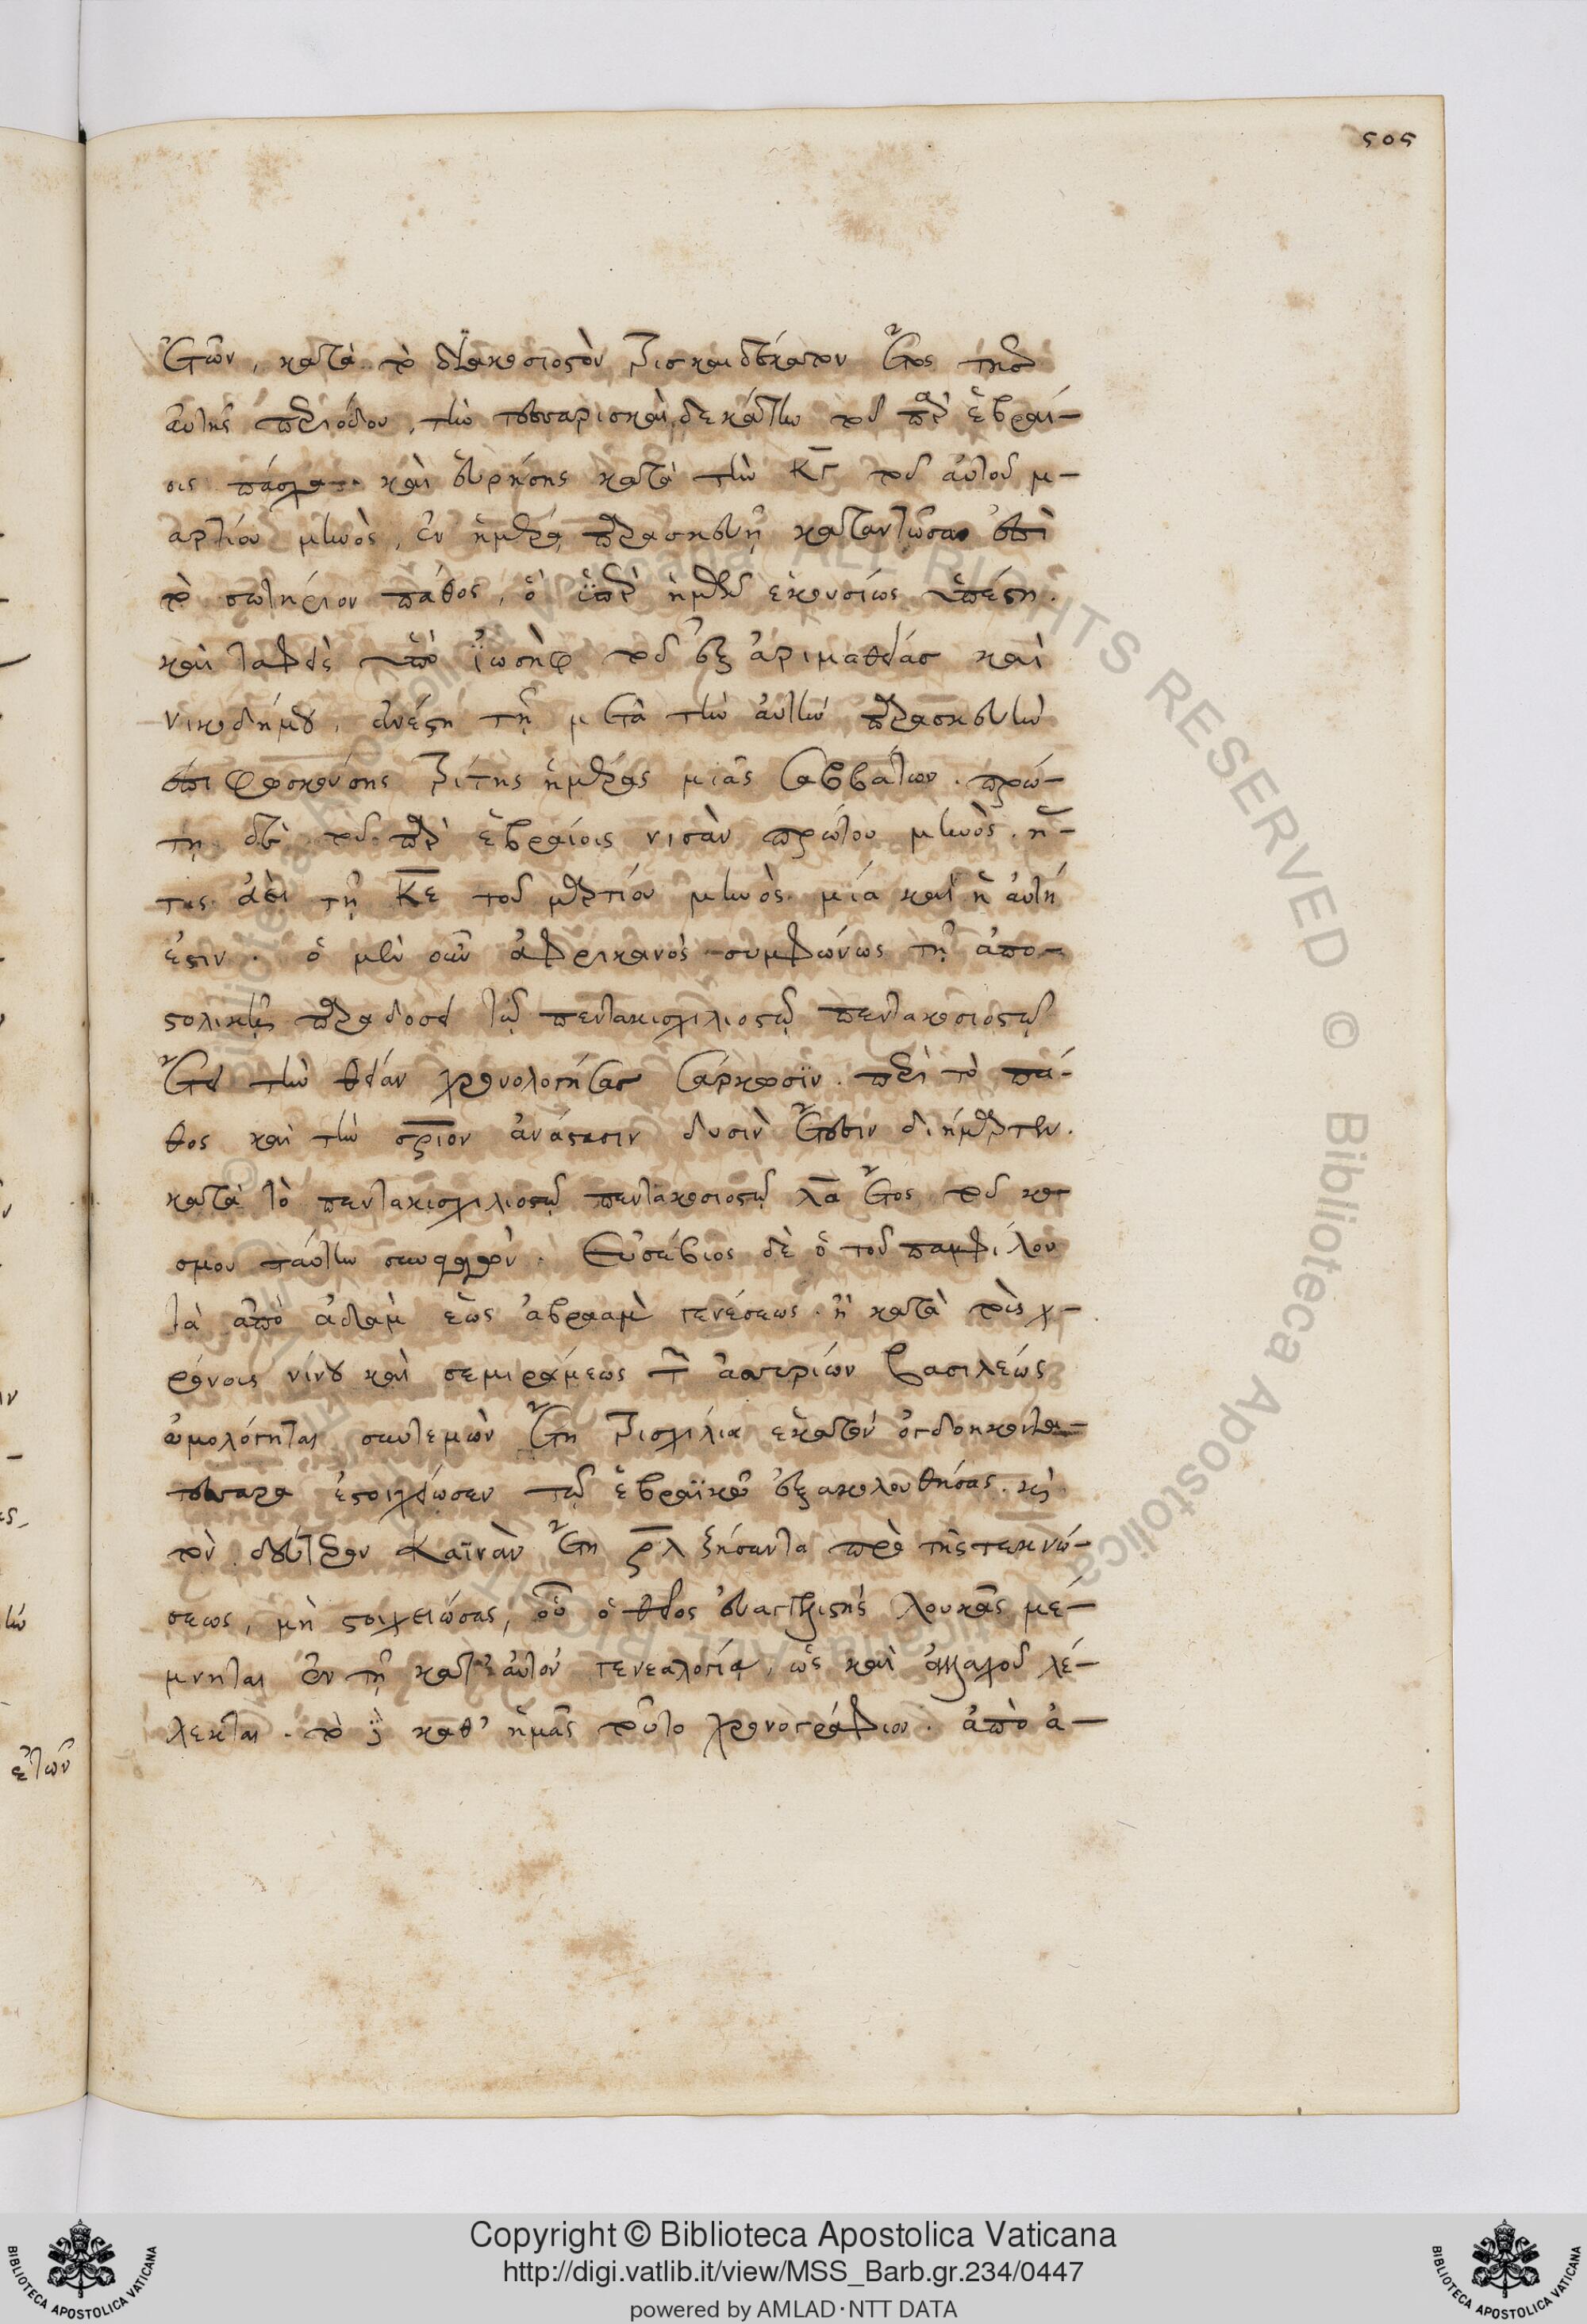 505
ἐτῶν, κατὰ τὸ διακοσιοστὸν τρισκαιδέκατον ἔτος τῆς
αὐτῆς περιόδου, τὴν τεσσαρισκαιδεκάτην τοῦ παρ' ἑβραί-
οις πάσχα. καὶ εὑρήσης κατὰ τὴν κγ τοῦ αὐτοῦ μ-
αρτίου μηνὸς, ἐν ἡμέρᾳ παρασκευῇ καταντῶσαν ἐπὶ
τὸ σωτήριον πάθος, ὃ ὑπὲρ ἡμῶν ἑκουσίως ὑπέστη.
καὶ ταφεὶς ὑπὸ ἰωσὴφ τοῦ ἐξ ἀριμαθείας καὶ
νικοδήμου, ἀνέστη τῇ μετὰ τὴν αὐτὴν παρασκευὴν
ἐπιφωσκούσης τρίτης ἡμέρας μιᾶς σαββάτων. πρώ-
τη δὲ τοῦ παρ' ἑβραίοις νισὰν πρώτου μηνὸς. ἥ-
τις ἀεὶ τῇ κε τοῦ μαρτίου μηνὸς μία καὶ ἡ αὐτή
ἐστιν. ὁ μὲν οὖν ἀφρικανὸς συμφώνως τῇ ἀπο-
στολικῇ παραδόσει τῷ πεντακισχιλιοστῷ πεντακοσιοστῷ
ἔτει τὴν θείαν χρονολογήσας σάρκωσιν. περὶ τὸ πά-
θος καὶ τὴν σριον ἀνάστασιν δυσὶν ἔτεσιν διήμαρτεν.
κατὰ τὸ πεντακισχιλιοστῷ πεντακοσιοστῷ λα ἔτος τοῦ κο
σμου ταύτην συναγαγών. Εὐσέβιος δὲ ὁ τοῦ παμφίλου
τὰ ἀπὸ ἀδὰμ ἕως ἀβραὰμ γενέσεως. ἣ κατὰ τοὺς χ-
ρόνοις νίνου καὶ σεμιράμεως τῶν ἀσσυρίων βασιλεώς
ὡμολόγηται συντεμὼν ἔτη τρισχίλια ἑκατὸν ὀγδοηκοντα-
τέσσαρα ἐστοιχείωσεν τῷ ἑβραϊκῷ ἐξακολουθήσας. καὶ
τὸν δεύτερον Καϊνὰν ἔτη ρλ ζήσαντα πρὸ τῆς τεκνώ-
σεως, μὴ στοιχειώσας, οὗ ὁ θεῖος εὐαγγελιστὴς λουκᾶς μέ-
μνηται ἐν τῇ κατ' αὐτὸν γενεαλογίᾳ, ὡς καὶ ἀλλαχοῦ λέ-
λεκται. τὸ δὲ καθ' ἡμᾶς τοῦτο χρονογράφιον. ἀπὸ ἀ-
ἐτῶν
Copyright © Biblioteca Apostolica Vaticana
http://digi.vatlib.it/view/MSS_Barb.gr.234/0447
powered by AMLAD·NTT DATA